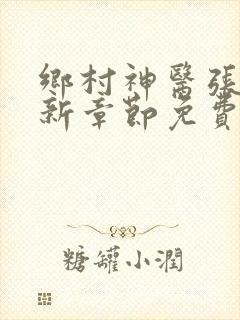 鄉村神醫張
新章節免費
糖罐小潤